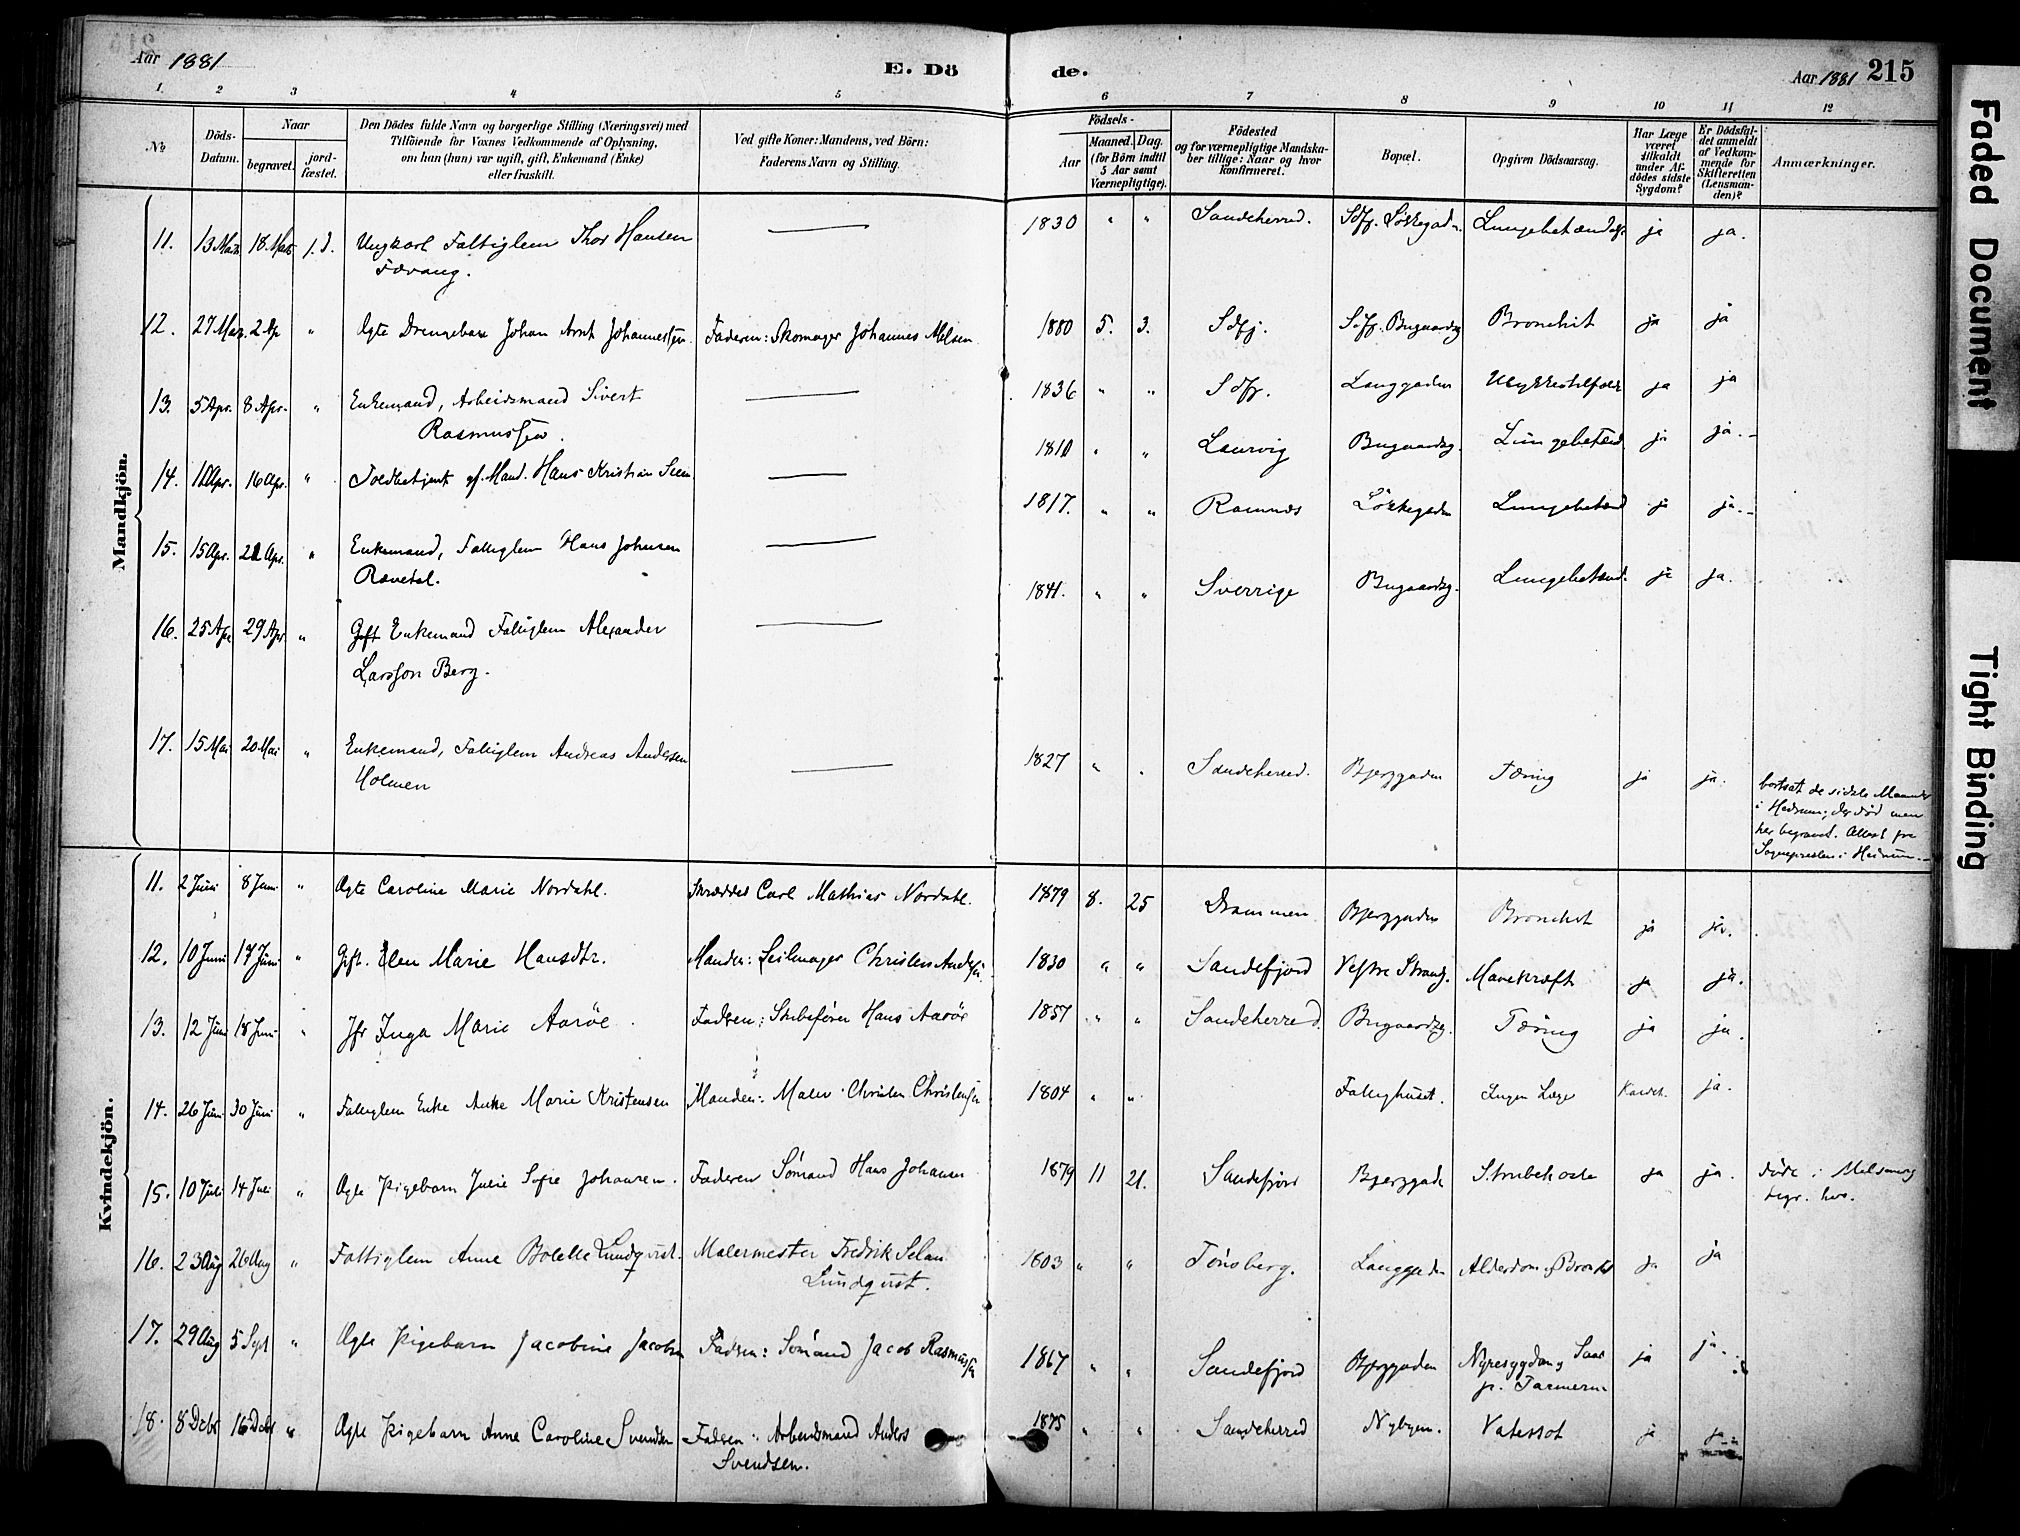 Aar 1881
E. Dö
de.
Aar 1881
215
1.
2
3
4
5
6
7
8
9
10
11
12
No
Döds-Datum.
Naar
begravet.
jord-fæstet.
Den Dödes fulde Navn og borgerlige Stilling (Næringsvei) med
Tilföiende for Voxnes Vedkommende af Oplysning,
om han (hun) var ugift, gift, Enkemand (Enke)
eller fraskilt.
Ved gifte Koner: Mandens, ved Börn:
Faderens Navn og Stilling.
Födsels-
Aar
Maaned. Dag.
(for Börn indtil
5 Aar samt
Værnepligtige).
Födested
og for værnepligtige Mandska-
ber tillige: Naar og hvor
konfirmeret.
Bopæl.
Opgiven Dödsaarsag.
Har Læge
været
tilkaldt
under Af-
dödes sidste
Sygdom?
Er Dödsfal-
det anmeldt
af Vedkom-
mende for
Skifteretten
(Lensman-
den)?
Anmærkninger.
Mandkjön.
11. 13 Marts 18 Marts j.d. Ungkarl Fattiglem Thor Hansen 1830 " " Sandeherred. Sdfj. Lökkegad. Lungebetændelse ja ja.
Færang.
12. 27 Mar. 2 Ap " Ægte Drengebarn Johan Arnt Johannessen. Faderen: Skomager Johannes Melsen 1880 5. 3. Sdfj. Sdfj. Bugaardsg Bronchit ja ja
13. 5 Apr. 8 Apr. " Enkemand, Arbeidsmand Sivert 1836 " " Sdfj. Langgaden Ulykkestilfælde ja ja
Rasmussen.
14. 11 Apr. 16 Apr. " Toldbetjent gf. Mand. Hans Kristian 1810 " " Laurvig Bugaardsg. Lungebetænd. ja ja.
15. 15 Apr. 21 Apr. " Enkemand, Fattiglem Hans Johnsen 1817. " " Ramnæs Lökkegaden Lungebetænd ja ja.
Rævetal.
16. 25 Apr 29 Apr " Gift Enkemand Fattiglem Alexander 1841. " " Sverrige Bugaardsg. Lungebetænd. ja ja.
Larsson Berg.
17. 15 Mai 20 Mai " Enkemand, Fattiglem Andreas Andersen 1827 " " Sandeherred. Bjerggaden Tæring ja ja.
Holmen
bortsat de sidste Maaneder
i Hedrum; der död men
her begravet. Attest fra
Sognepresten i Hedrum.
Kvindekjön.
11. 2 Juni 8 Juni " Ægte Caroline Marie Nordahl. Skrædder Carl Mathias Nordahl. 1879 8. 25 Drammen Bjerggaden Bronchit ja ja.
12. 10 Juni 17 Juni " Gift. Elen Marie Hansdtr. Manden: Seilmager Christen Andersen 1830 " " Sandefjord Vestre Strand. Mavekræft ja ja.
13. 12 Juni 18 Juni " Jfr Inga Marie Aaröe. Faderen: Skibsförer Hans Aaröe 1857 " " Sandeherred. Bugaardsg. Tæring ja ja.
14. 26 Juni 30 Juni " Fattiglem Enke Anne Marie Kristensen Manden: Maler Christen Christensen 1804 " " Fattighuset. Ingen Læge ja.
15. 10 Juli 14 Juli " Ægte Pigebarn Julie Sofie Johansen. Faderen Sömand Hans Johansen 1879 11 21. Sandefjord Bjerggade Strubehoste ja ja. döde i
begr. her.
16. 23 Aug 26 Aug " Fattiglem Anne Bolette Lundqvist. Malermester Fredrik Selan 1803 " " Tönsberg. Langgaden Alderdom ja ja
Lundqvist.
17. 29 Aug 5 Sept " Ægte Pigebarn Jacobine Jacobsen Faderen: Sömand Jacob Rasmussen 1867 " " Sandefjord Bjerggaden Nyresygdom, Saar ja ja.
p. Tarmerne
18. 8 Decbr 16 Decbr " Ægte Pigebarn Anne Caroline Svendsen Faderen: Arbeidsmand Anders 1875 " " Sandeherred Nybyen. Vatersot ja ja
Svendsen.
Faded Document
Tight Binding